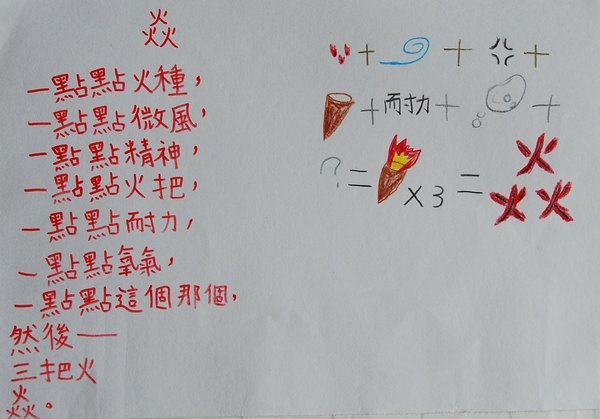 焱
一點點火種，
一點點微風，
一點點精神，
一點點火把，
一點點耐力，
一點點氧氣，
一點點這個那個，
然後——
三把火
焱。
+ + +
+ 耐力 + +
? = × 3 = 火火火